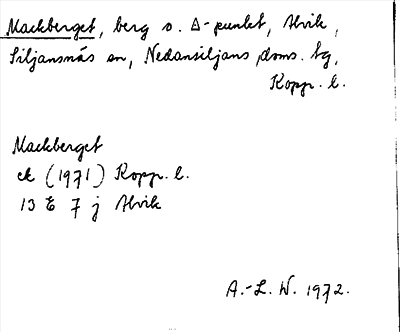 Mackberget, berg o. Δ-punkt, Alvik,
Siljansnäs sn, Nedansiljans doms. tg,
Kopp. l.
Mackberget
ek (1971) Kopp. l.
13 E 7 j Alvik
A.-L. W. 1972.